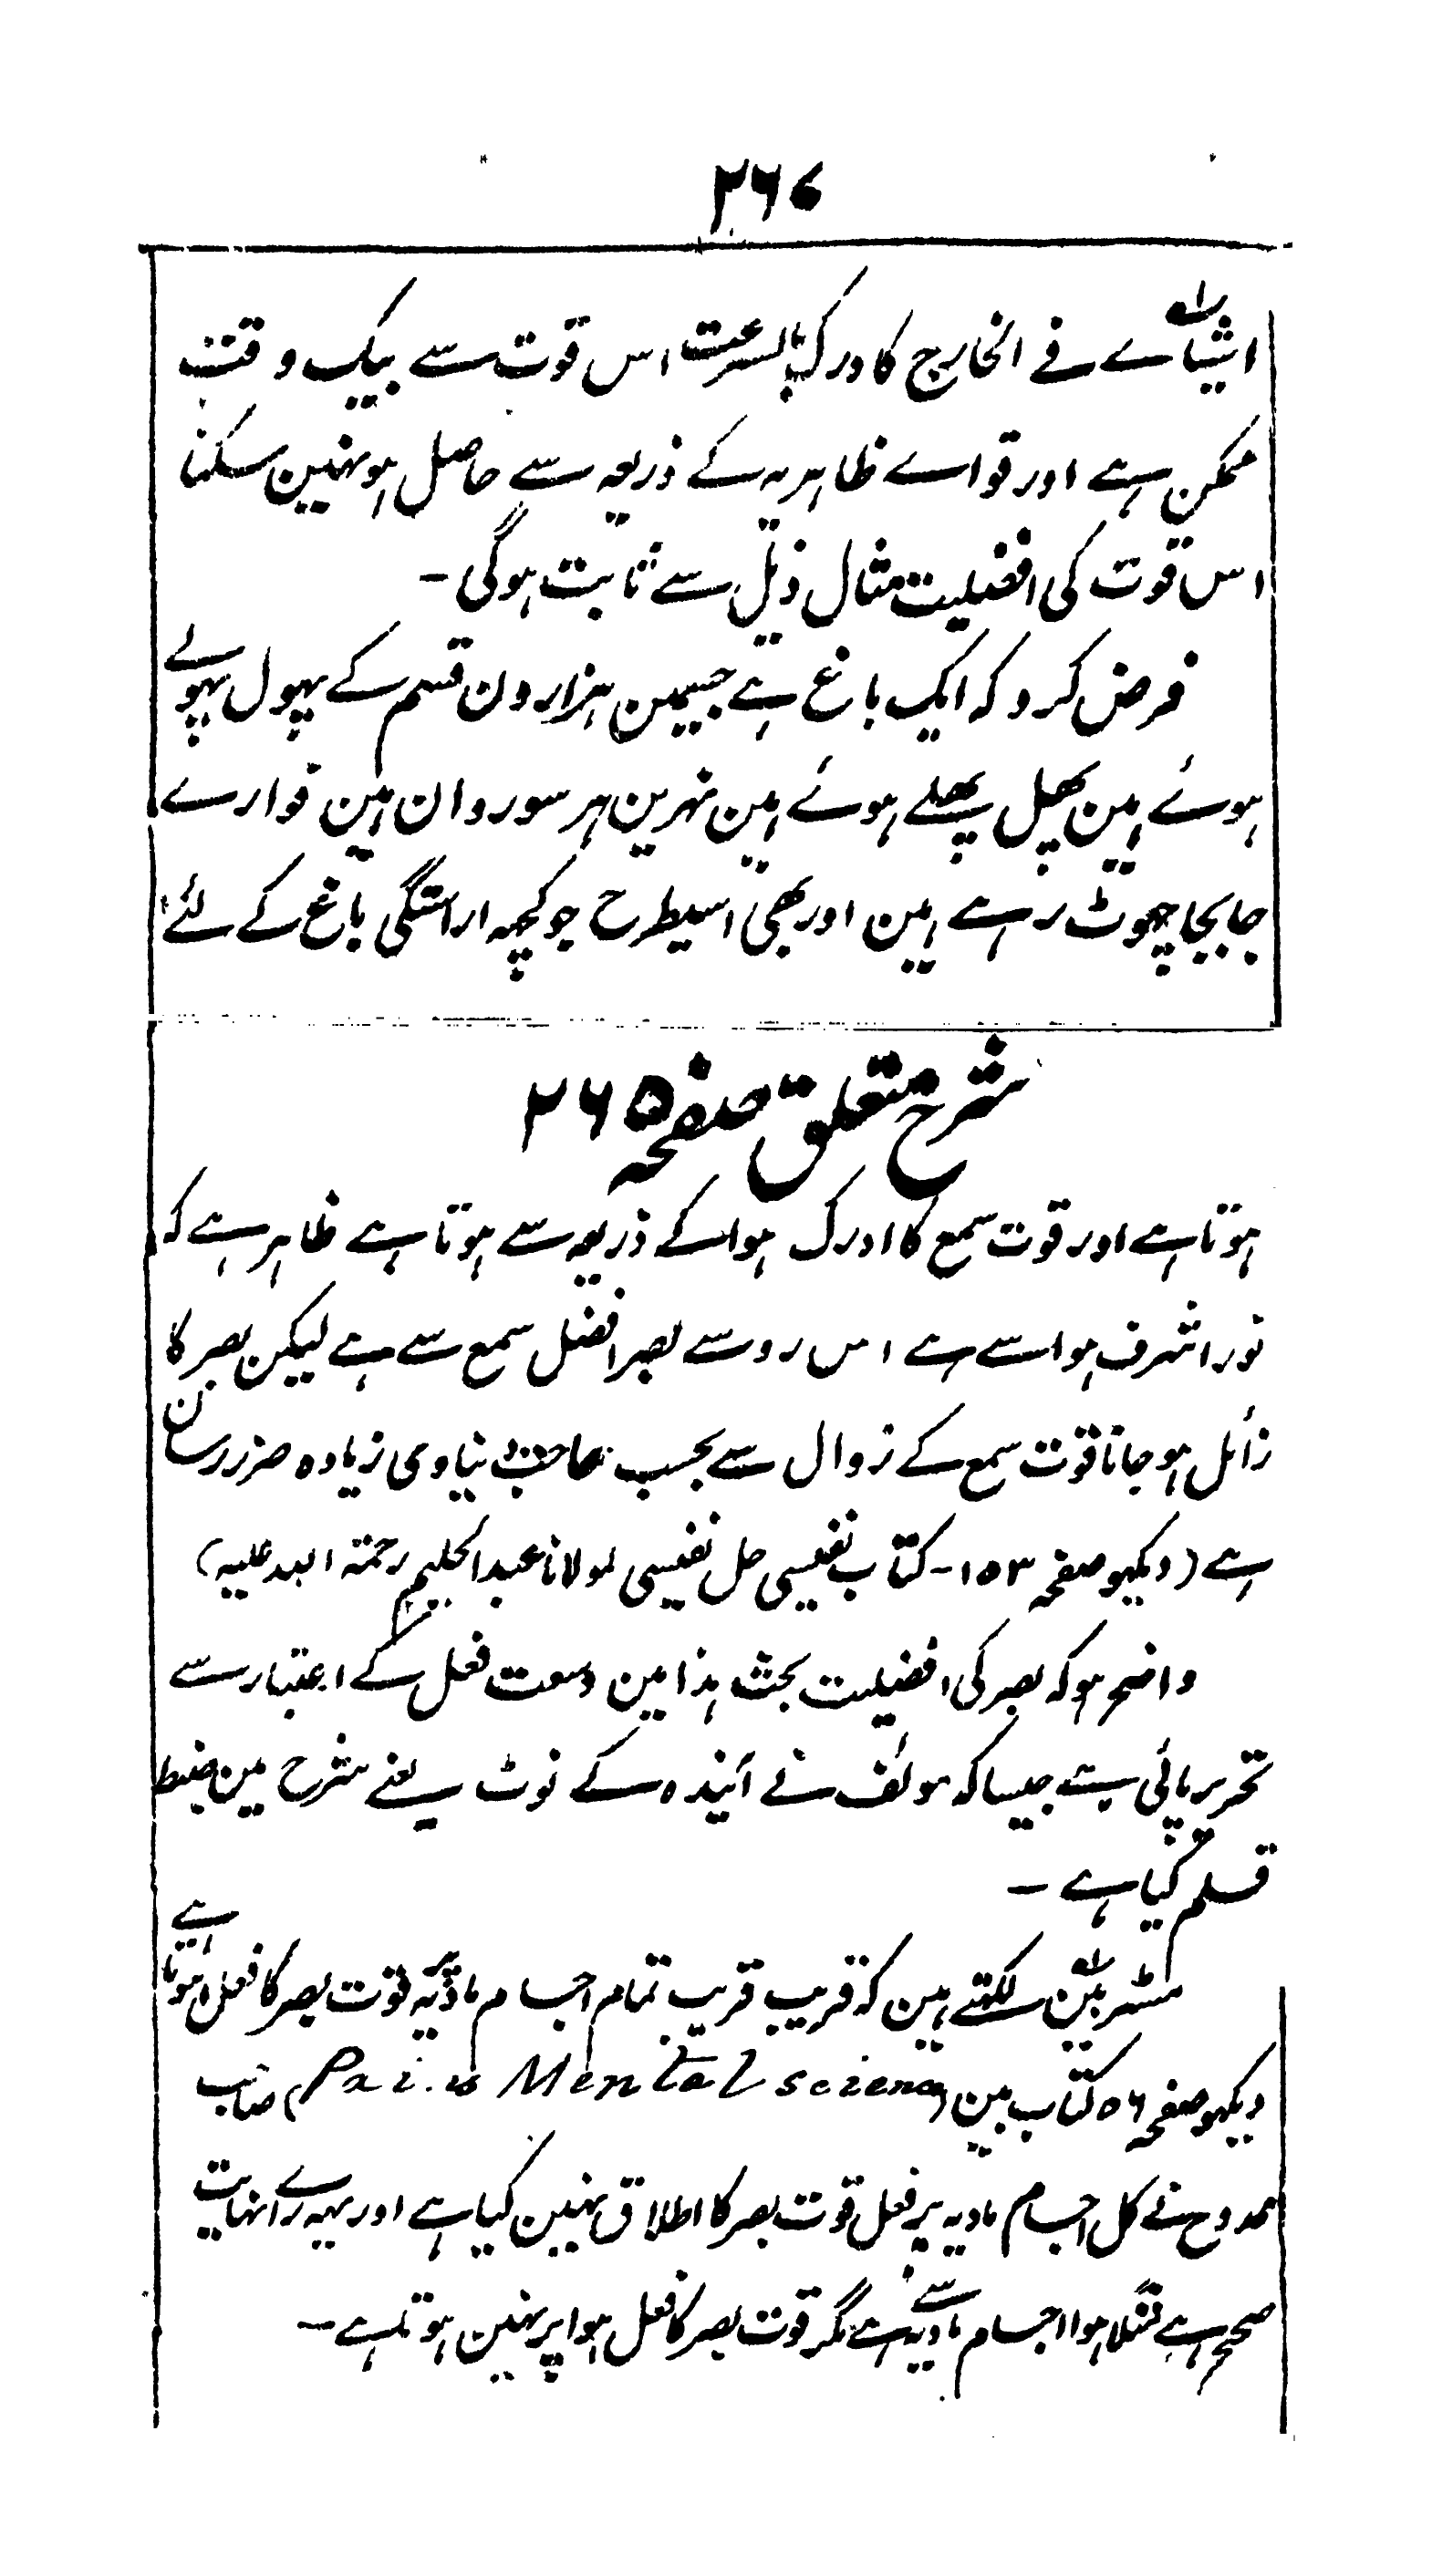 ۲۶۷
اشیاے فے الخارج کا درک بسرعت اس قوت سے بیک وقت
ممکن ہے اور قواے ظاہریہ کے ذریعہ سے حاصل ہو نہین سکتا
اس قوت کی افضلیت مثال ذیل سے ثابت ہوگی -
فرض کرو کہ ایک باغ ہے جسمین ہزارون قسم کے پہول پہولے
ہوئے ہین پھل پھلے ہوئے ہین نہرین ہر سو روان ہین فوارے
جا بجا چھوٹ رہے ہین اور بھی اسیطرح جو کچہہ اراستگی باغ کے لئے
شرح متعلق صفحہ ۲۶۵
ہوتا ہے اور قوت سمع کا ادرک ہوا کے ذریعہ سے ہوتا ہے ظاہر ہے کہ
نور اشرف ہوا سے ہے اس رو سے بصر افضل سمع سے ہے لیکن بصر کا
زائل ہو جانا قوت سمع کے زوال سے بحسب دنیاوی زیادہ ضرر رسان
ہے (دیکہو صفحہ ۱۵۳- کتاب نفیسی حل نفیسی لمولانا عبدالحلیم رحمتہ اللہ علیہ)
واضح ہو کہ بصر کی افضلیت بحث ہذا مین وسعت فعل کے اعتبار سے
تحریر پائی ہے جیسا کہ مولف نے آیندہ کے نوٹ یعنے شرح مین ضبط
قلم کیا ہے -
مسٹر بین لکہتے ہین کہ قریب قریب تمام اجسام مادّیہ قوت بصر کا فعل ہوتا ہے
دیکہو صفحہ ۵۶ کتاب بین (Mental science) صاحب
ممدوح نے کل اجسام مادیہ پر فعل قوت بصر کا اطلاق نہین کیا ہے اور یہہ راے نہایت
صحیح ہے مثلا ہوا اجسام مادیہ سے ہے مگر قوت بصر کا فعل ہوا پر نہین ہوتا ہے -